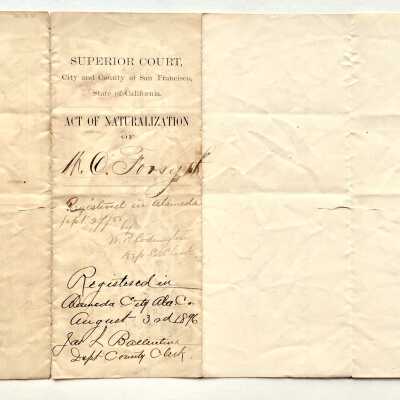 SUPERIOR COURT,
City and County of San Francisco,
State of California.
ACT OF NATURALIZATION
OF
Registered in Alameda
Sept
by
Registered in
Alameda City Ala Co.
August 3rd 1896
Jas L Ballentine
Dept County Clerk